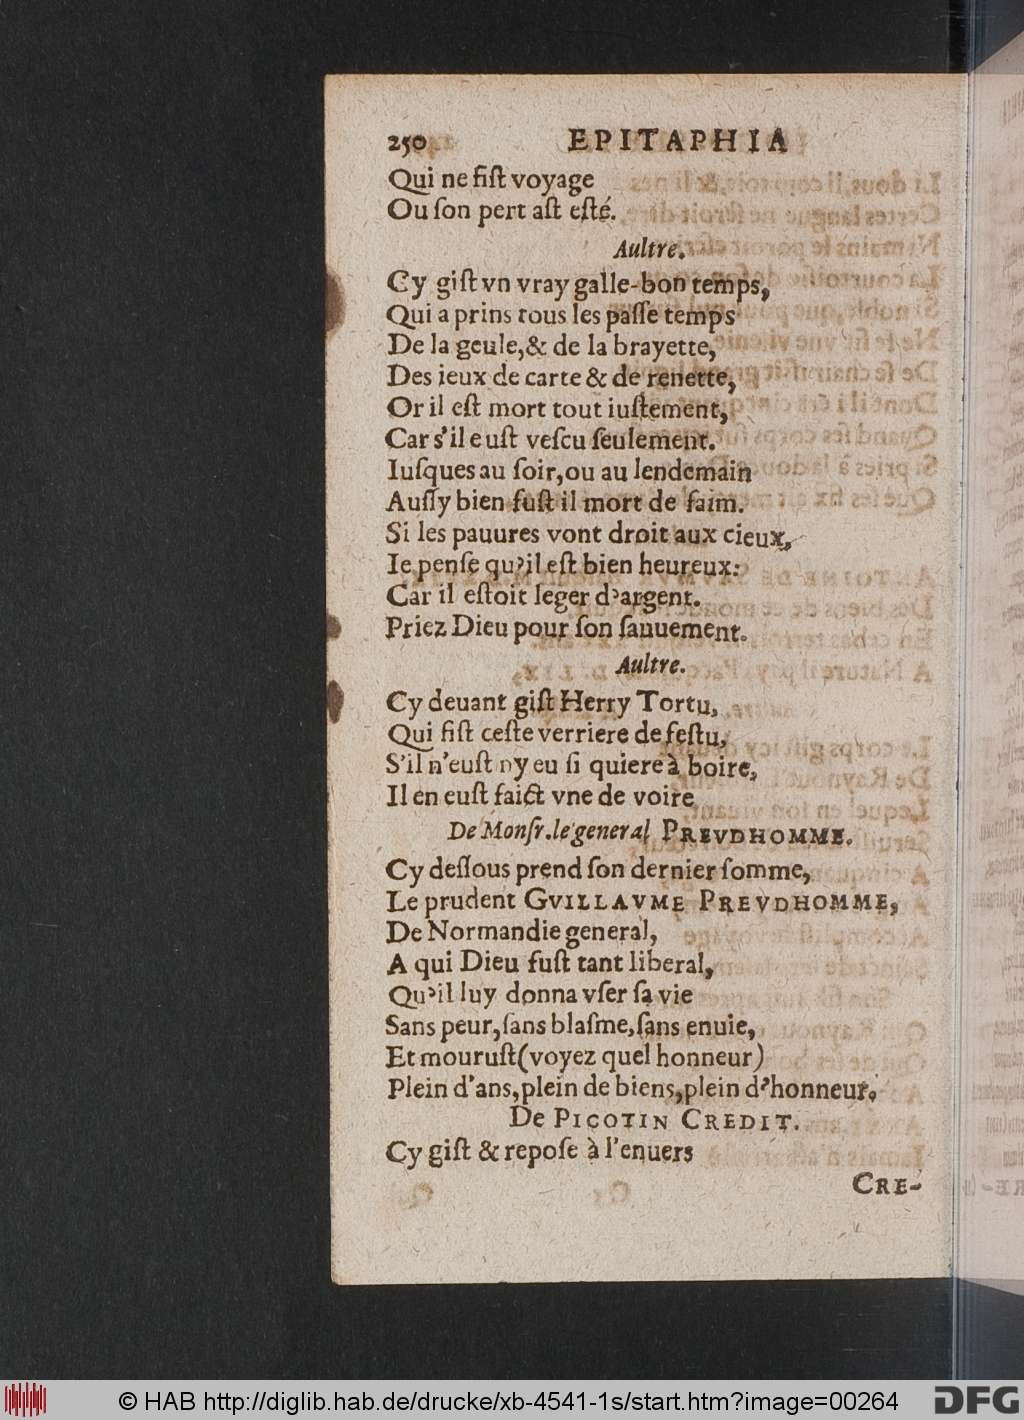 250 EPITAPHIA
Qui ne fiſt voyage
Ou ſon pert aſt eſté.
Aultre.
Cy giſt vn vray galle-bon temps,
Qui a prins tous les paſſe temps
De la geule,& de la brayette,
Des ieux de carte & de renette,
Or il eſt mort tout iuſtement,
Car s'il euſt veſcu ſeulement.
Iuſques au ſoir,ou au lendemain
Auſſy bien fuſt il mort de faim.
Si les pauures vont droit aux cieux,
Ie penſe qu'il eſt bien heureux:
Car il eſtoit leger d'argent.
Priez Dieu pour ſon ſauuement.
Aultre.
Cy deuant giſt Herry Tortu,
Qui fiſt ceſte verriere de feſtu,
S'il n'euſt ny eu ſi quiere à boire,
Il en euſt faict vne de voire
De Monſr.le general PREVDHOMME.
Cy deſſous prend ſon dernier ſomme,
Le prudent GVILLAVME PREVDHOMME,
De Normandie general,
A qui Dieu fuſt tant liberal,
Qu'il luy donna vſer ſa vie
Sans peur,ſans blaſme,ſans enuie,
Et mouruſt(voyez quel honneur)
Plein d'ans,plein de biens,plein d'honneur.
De PICOTIN CREDIT.
Cy giſt & repoſe à l'enuers
CRE-
© HAB http://diglib.hab.de/drucke/xb-4541-1s/start.htm?image=00264
DFG